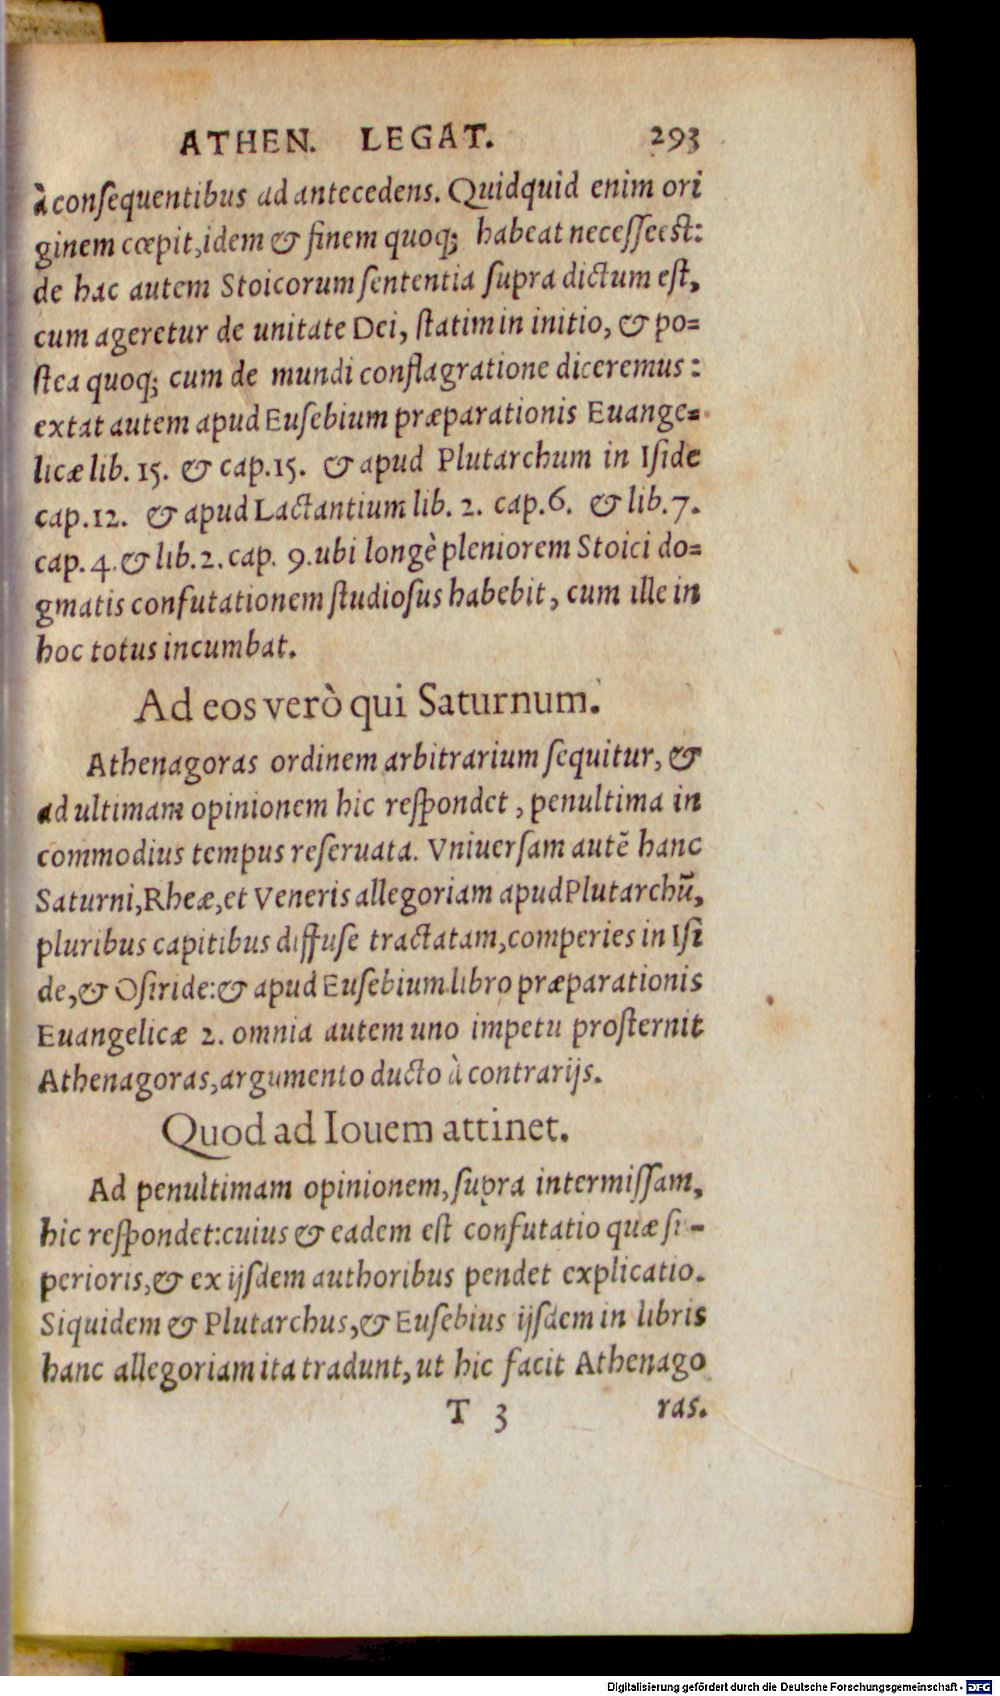 ATHEN. LEGAT. 293
à conſequentibus ad antecedens. Quidquid enim ori
ginem cœpit, idem & finem quoq; habeat neceſſe eſt:
de hac autem Stoicorum ſententia ſupra dictum eſt,
cum ageretur de unitate Dei, ſtatim in initio, & po=
ſtea quoq; cum de mundi conflagratione diceremus:
extat autem apud Euſebium præparationis Euange=
licæ lib. 15. & cap. 15. & apud Plutarchum in Iſide
cap. 12. & apud Lactantium lib. 2. cap. 6. & lib. 7.
cap. 4. & lib. 2. cap. 9. ubi longè pleniorem Stoici do=
gmatis confutationem ſtudioſus habebit, cum ille in
hoc totus incumbat.
Ad eos verò qui Saturnum.
Athenagoras ordinem arbitrarium ſequitur, &
ad ultimam opinionem hic reſpondet, penultima in
commodius tempus reſeruata. Vniuerſam autẽ hanc
Saturni, Rheæ, et Veneris allegoriam apud Plutarchũ,
pluribus capitibus diffuſe tractatam, comperies in Iſi
de, & Oſiride: & apud Euſebium libro præparationis
Euangelicæ 2. omnia autem uno impetu proſternit
Athenagoras, argumento ducto à contrarijs.
Quod ad Iouem attinet.
Ad penultimam opinionem, ſupra intermiſſam,
hic reſpondet: cuius & eadem eſt confutatio quæ ſi-
perioris, & ex ijſdem authoribus pendet explicatio.
Siquidem & Plutarchus, & Euſebius ijſdem in libris
hanc allegoriam ita tradunt, ut hic facit Athenago
T 3 ras.
Digitalisierung gefördert durch die Deutsche Forschungsgemeinschaft - DFG